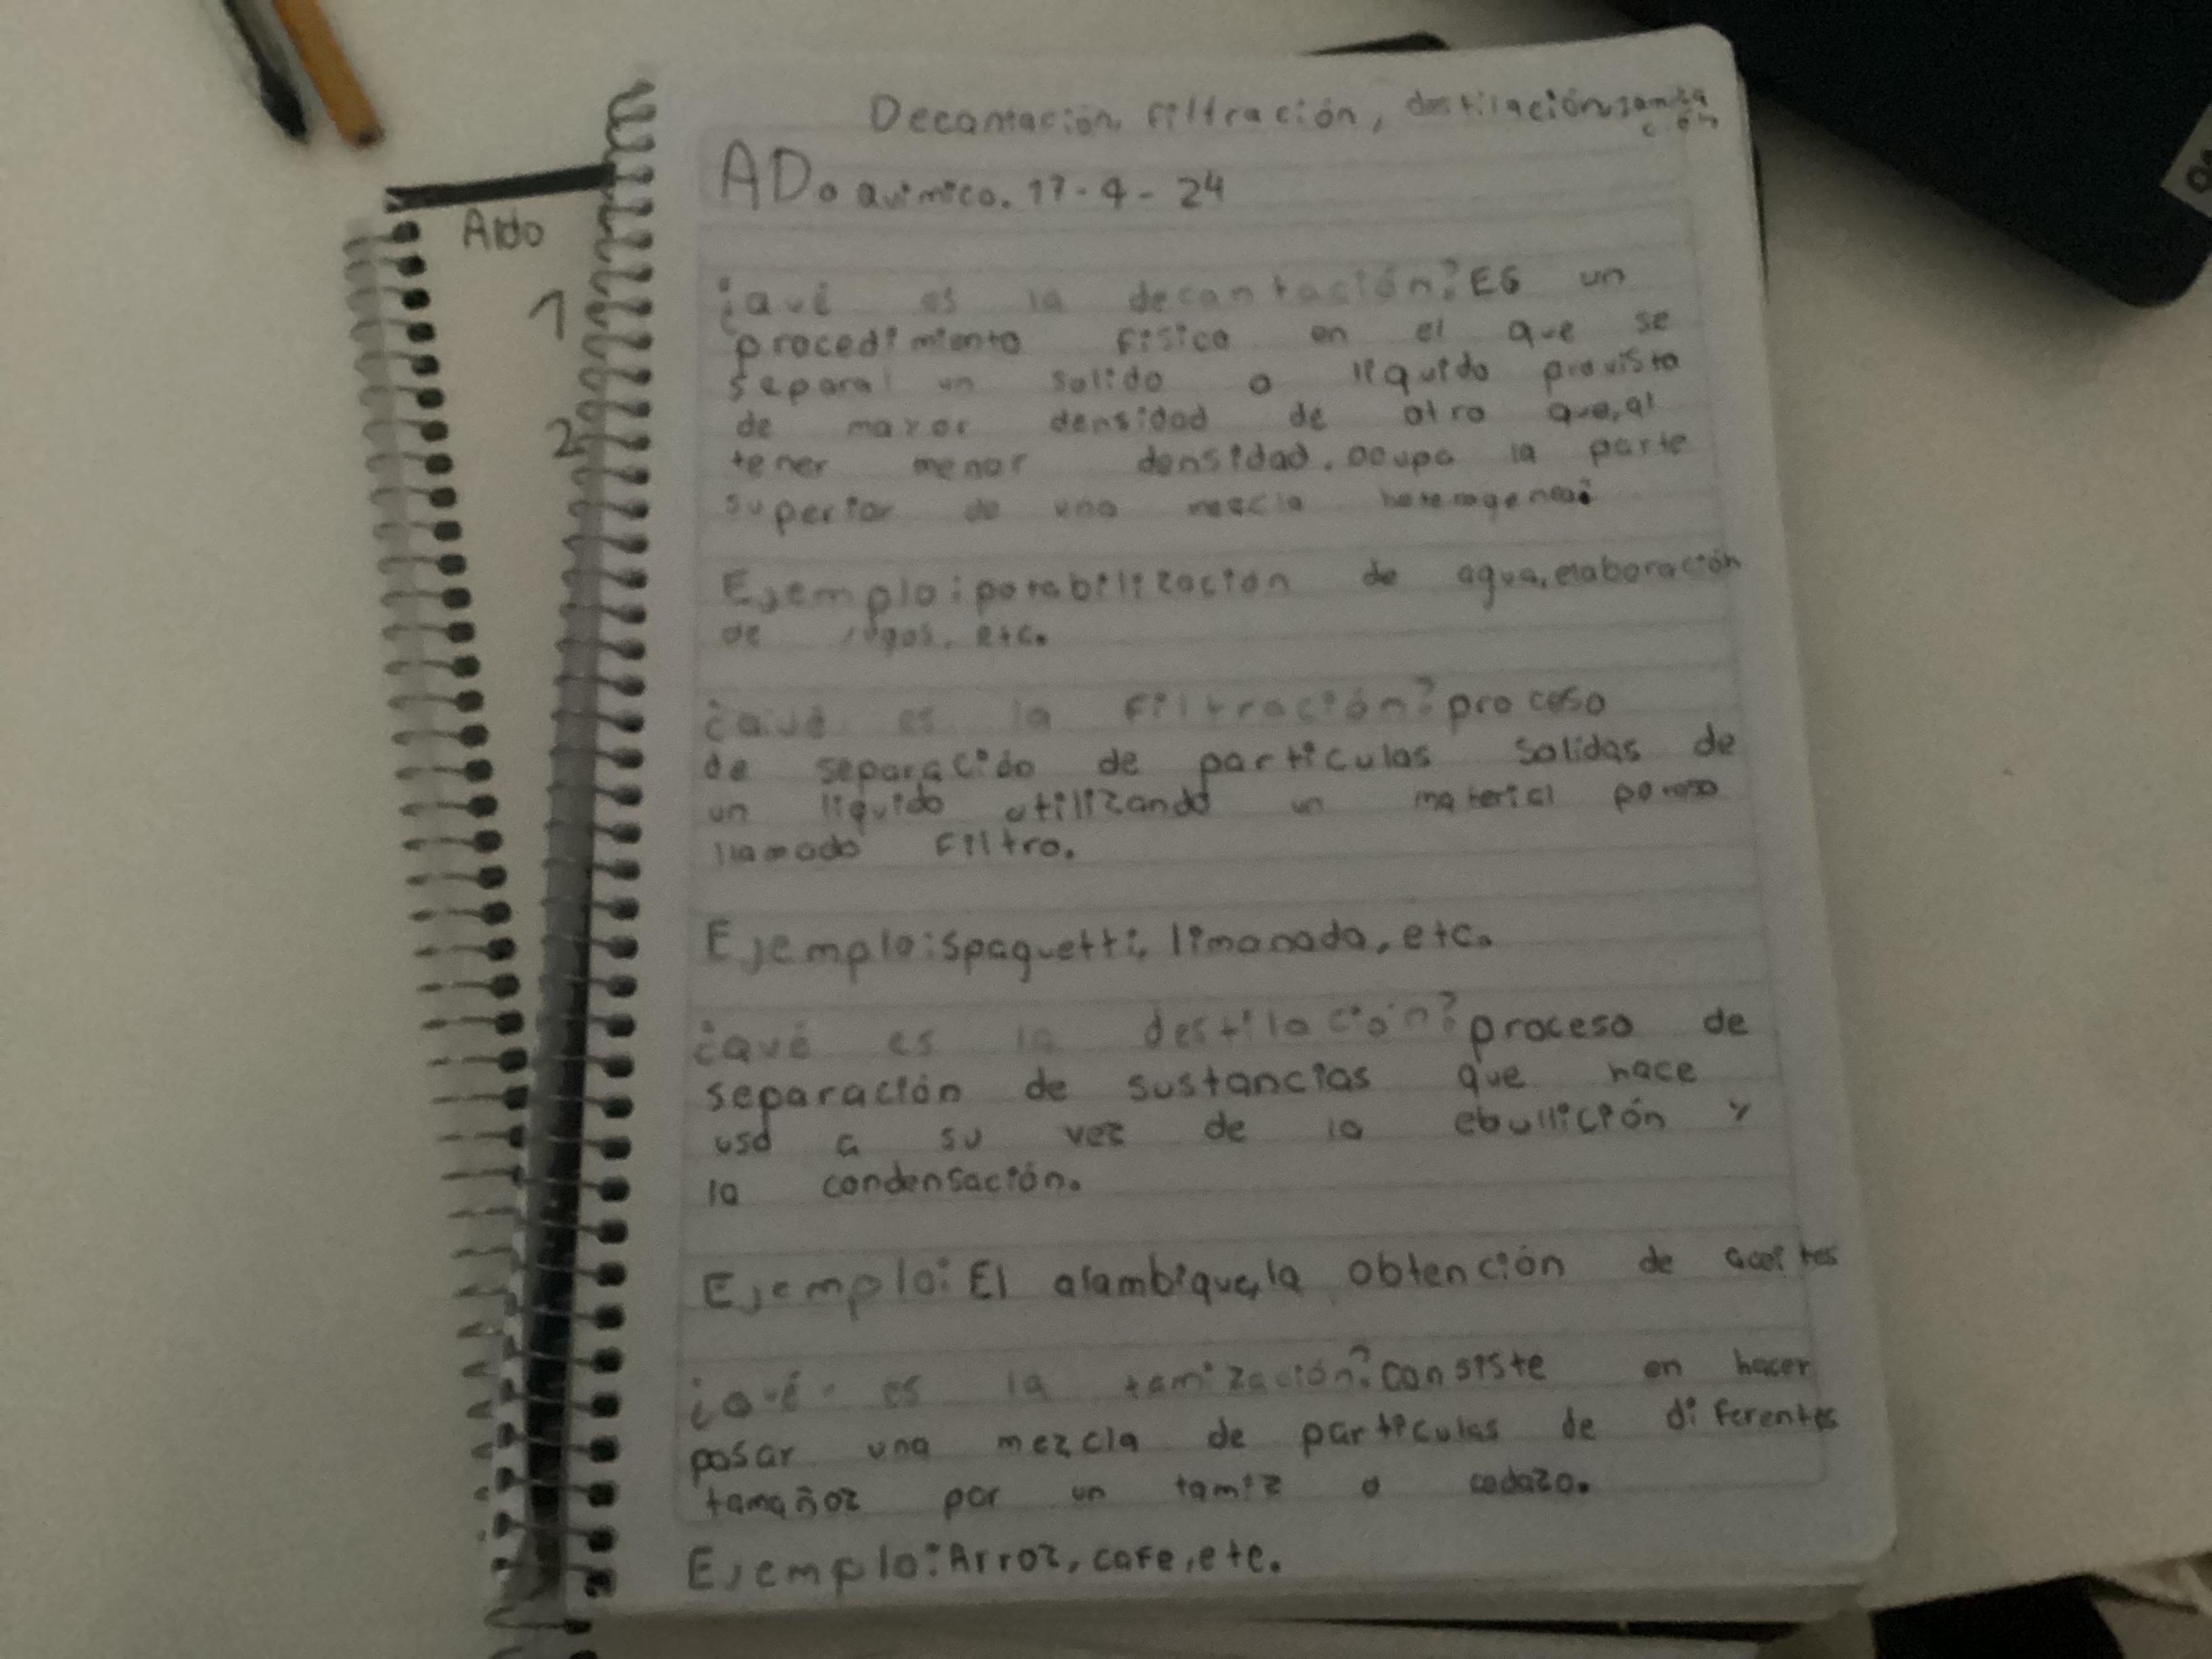 Decantación filtración, destilación, tamiza
ción
AD. Quimico. 17-4-24
Aldo
1
2
¿Qué es la decantación? ES un
procedimiento fisico en el que se
separal un solido o liquido provisto
de mayor densidad de otro que, al
tener menor densidad. ocupa la parte
superior de una mezcla heterogenea
Ejemplo: potabilización de agua, elaboración
de jugos, etc.
¿Qué es la filtración? proceso
de separacióo de particulas solidas de
un liquido utilizando un material poroso
llamado filtro.
Ejemplo: spaguetti, limonada, etc.
¿Qué es la destilación? proceso de
separación de sustancias que hace
uso a su vez de la ebullición y
la condensación.
Ejemplo: El alambique, la obtención de aceites
¿Qué es la tamización? consiste en hacer
pasar una mezcla de particulas de diferentes
tamañoz por un tamiz o cedazo.
Ejemplo: Arroz, cafe, etc.